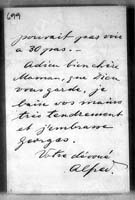 699
pouvait pas voir
à 30 pas. —
Adieu bien chère
Maman, que Dieu
vous garde, je
baise vos mains
très tendrement
et j'embrasse
Georges.
Votre dévoué
Alfred.